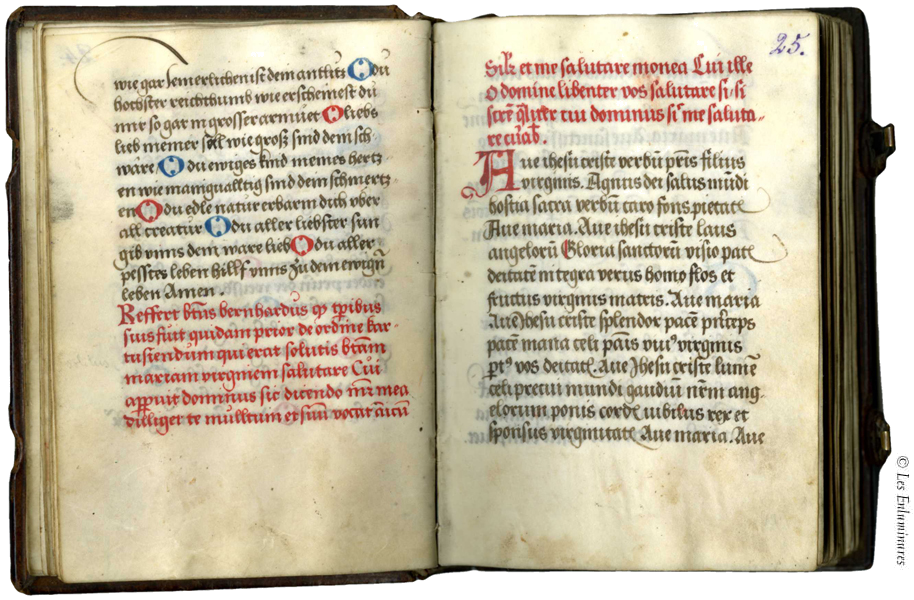 wie gar iemerlichen ist dein antlitz O du
hochster reichthumb wie erscheinest du
mir so gar in grosser armuet O liebs
lieb meiner soll wie groß sind dein sch
ware O du ewiges kind meines hertz
en wie maniqualltig sind dein schmertz
en O du edle natur erbarm dich vber
all creatur O du aller liebster sun
gib vnns dein ware lieb O du aller
pesstes leben hillf vnns zu dem ewign
leben Amen
Reffert btus bernhardus q tpribus
suis fuit quidam prior de ordine kar
tusiendum qui erat solutis btam
mariam virginem salutare Cui
apparuit dominus sic dicendo mr mea
diliget te mulltum et suu vocat
25.
et me salutare monea Cui ille
o domine libenter vos salutare si si
scire tui dominus si me saluta
re
Aue ihesu criste verbu pris filius
virginis. Agnus dei salus mudi
hostia sacra verbu caro fons pietate
Aue maria. Aue ihesu criste laus
angeloru Gloria sanctoru visio pate
deitate integra verus homo flos et
fructus virginis matris. Aue maria
Aue Ihesu criste splendor pace princeps
pace mana celi panis viui virginis
vos deitate. Aue Ihesu criste lume
celi precui mundi gaudiu nrm ang
elorum ponis corde iubilus rex et
sponsus virginitate Aue maria. Aue
© Les Enluminures